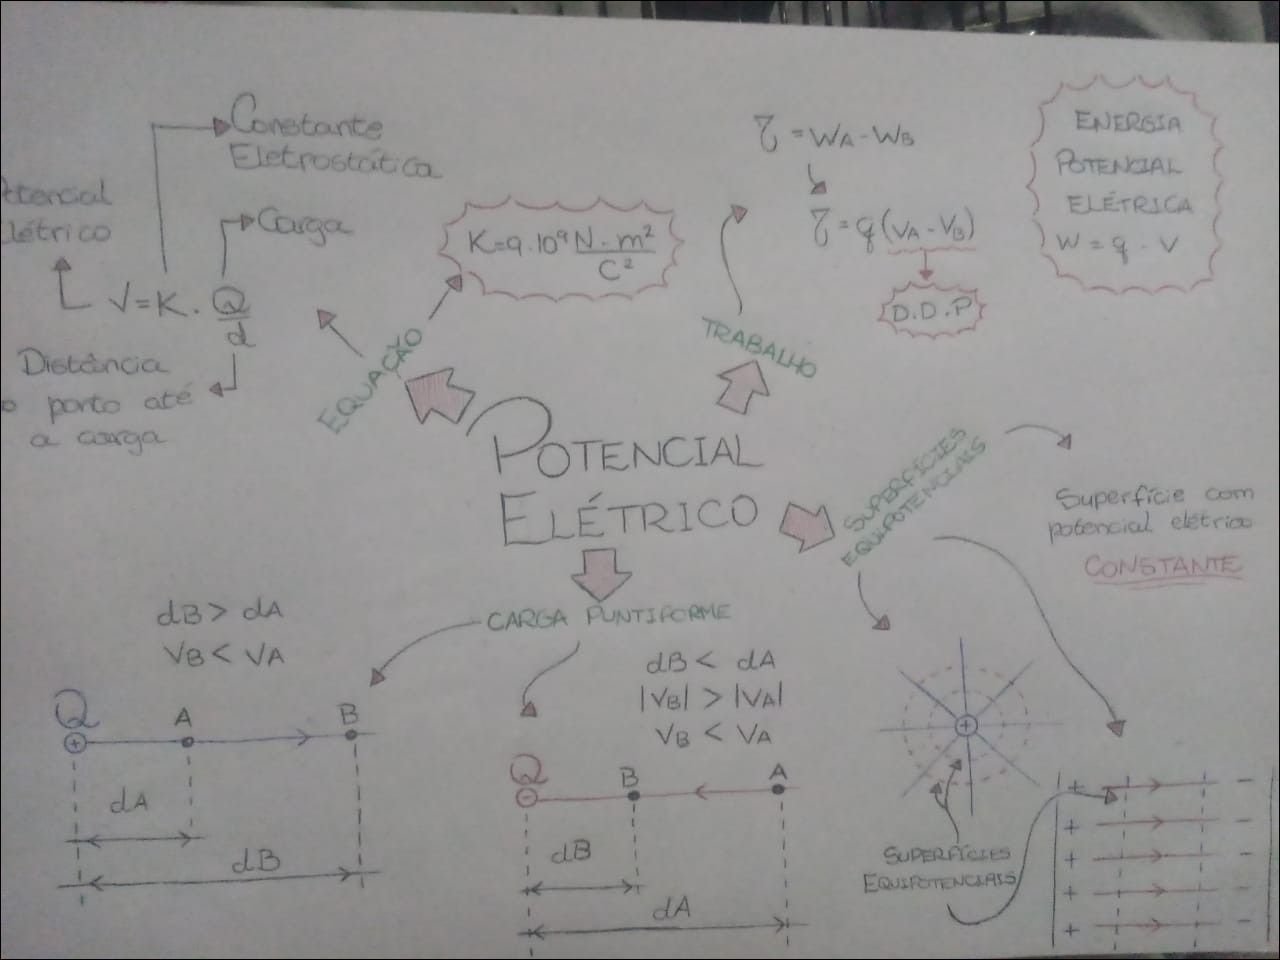 Constante
Eletrostática
Carga
otencial
létrico
V=K. Q/d
Distância
o ponto até
a carga
EQUAÇÃO
K=9.10⁹ N.m²/C²
TRABALHO
τ = WA-WB
τ=q(VA-VB)
D.D.P
ENERGIA
POTENCIAL
ELÉTRICA
W = q . V
POTENCIAL
ELÉTRICO
SUPERFÍCIES
EQUIPOTENCIAIS
Superfície com
potencial elétrico
CONSTANTE
CARGA PUNTIFORME
dB > dA
VB < VA
Q A B
+
dA
dB
dB < dA
|VB| > |VA|
VB < VA
Q B A
-
dB
dA
+
SUPERFÍCIES
EQUIPOTENCIAIS
+ -
+ -
+ -
+ -
+ -